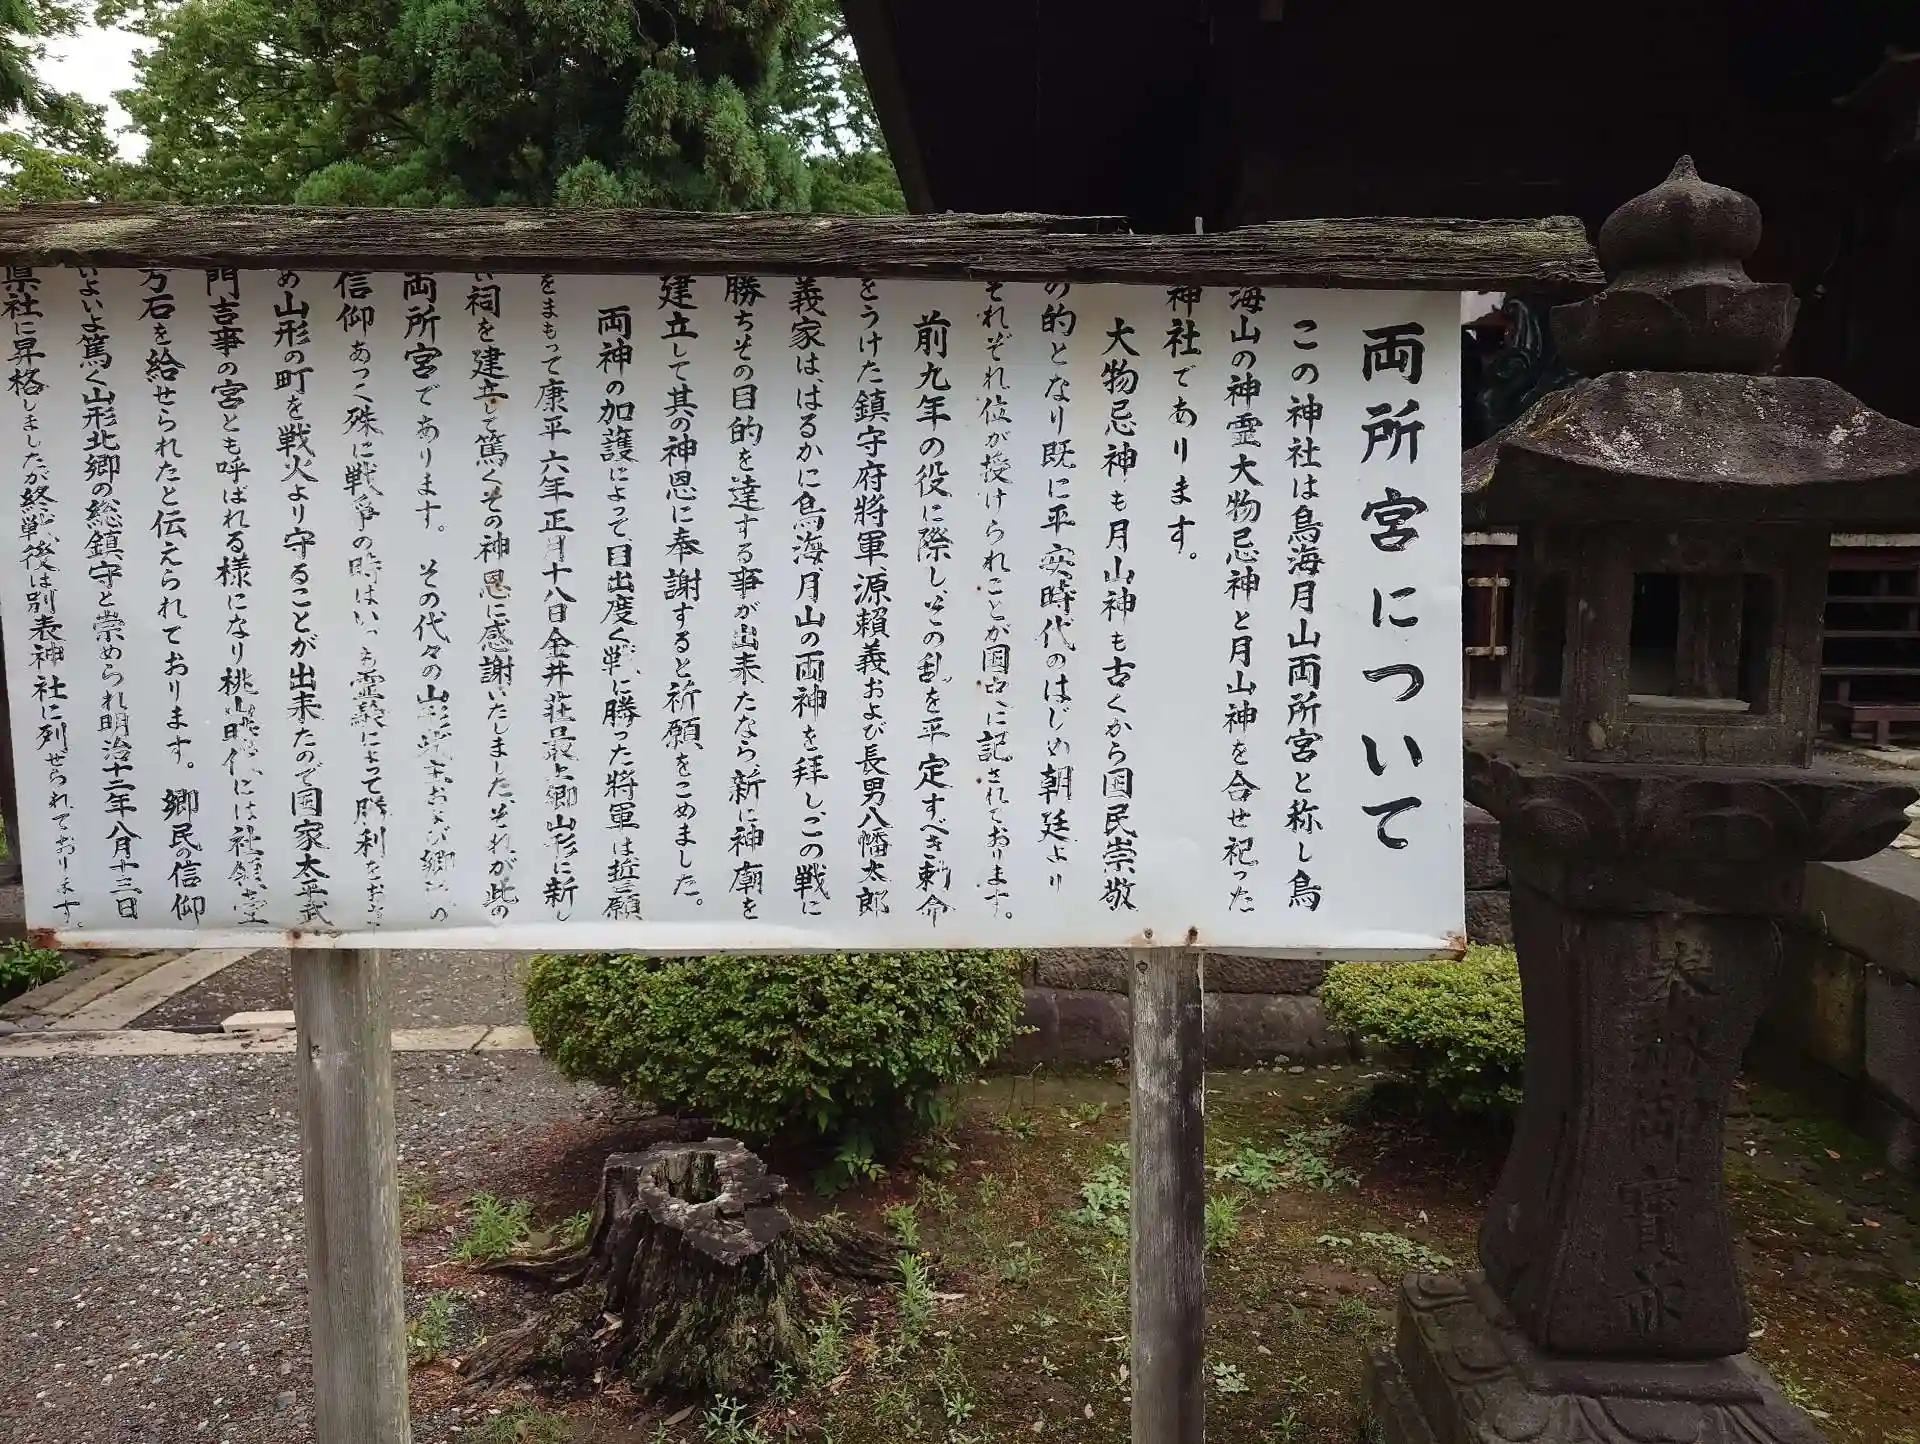 両所宮について
この神社は鳥海月山両所宮と称し鳥
海山の神霊大物忌神と月山神を合せ祀った
神社であります。
大物忌神も月山神も古くから国民崇敬
の的となり既に平安時代のはじめ朝廷より
それぞれ位が授けられことが国史に記されております。
前九年の役に際し、その乱を平定すべき勅命
をうけた鎮守府将軍、源頼義および長男八幡太郎
義家ははるかに鳥海、月山の両神を拝し、この戦に
勝ちその目的を達する事が出来たなら、新に神廟を
建立して其の神恩に奉謝すると祈願をこめました。
両神の加護によって、目出度く戦に勝った将軍は祈願
をまもって康平六年正月十八日金井荘最上郷山形に新し
い祠を建立して篤くその神恩に感謝いたしました、それが此の
両所宮であります。その代々の山形城主および郷の
信仰あつく殊に戦争の時はいつも霊験によって勝利をおさ
め山形の町を戦火より守ることが出来たので国家太平武
門吉事の宮とも呼ばれる様になり桃山時代には社領壹
万石を給せられたと伝えられております。郷民の信仰
いよいよ篤く山形北郷の総鎮守と崇められ明治十二年八月十三日
県社に昇格しましたが終戦後は別表神社に列せられております。
奉献御寶前